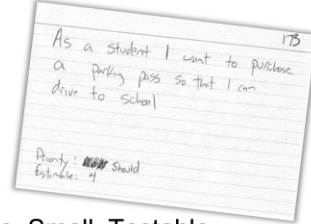 173
As a student I want to purchase
a parking pass so that I can
drive to school
Priority: Should
Estimate: 4
Small Testable